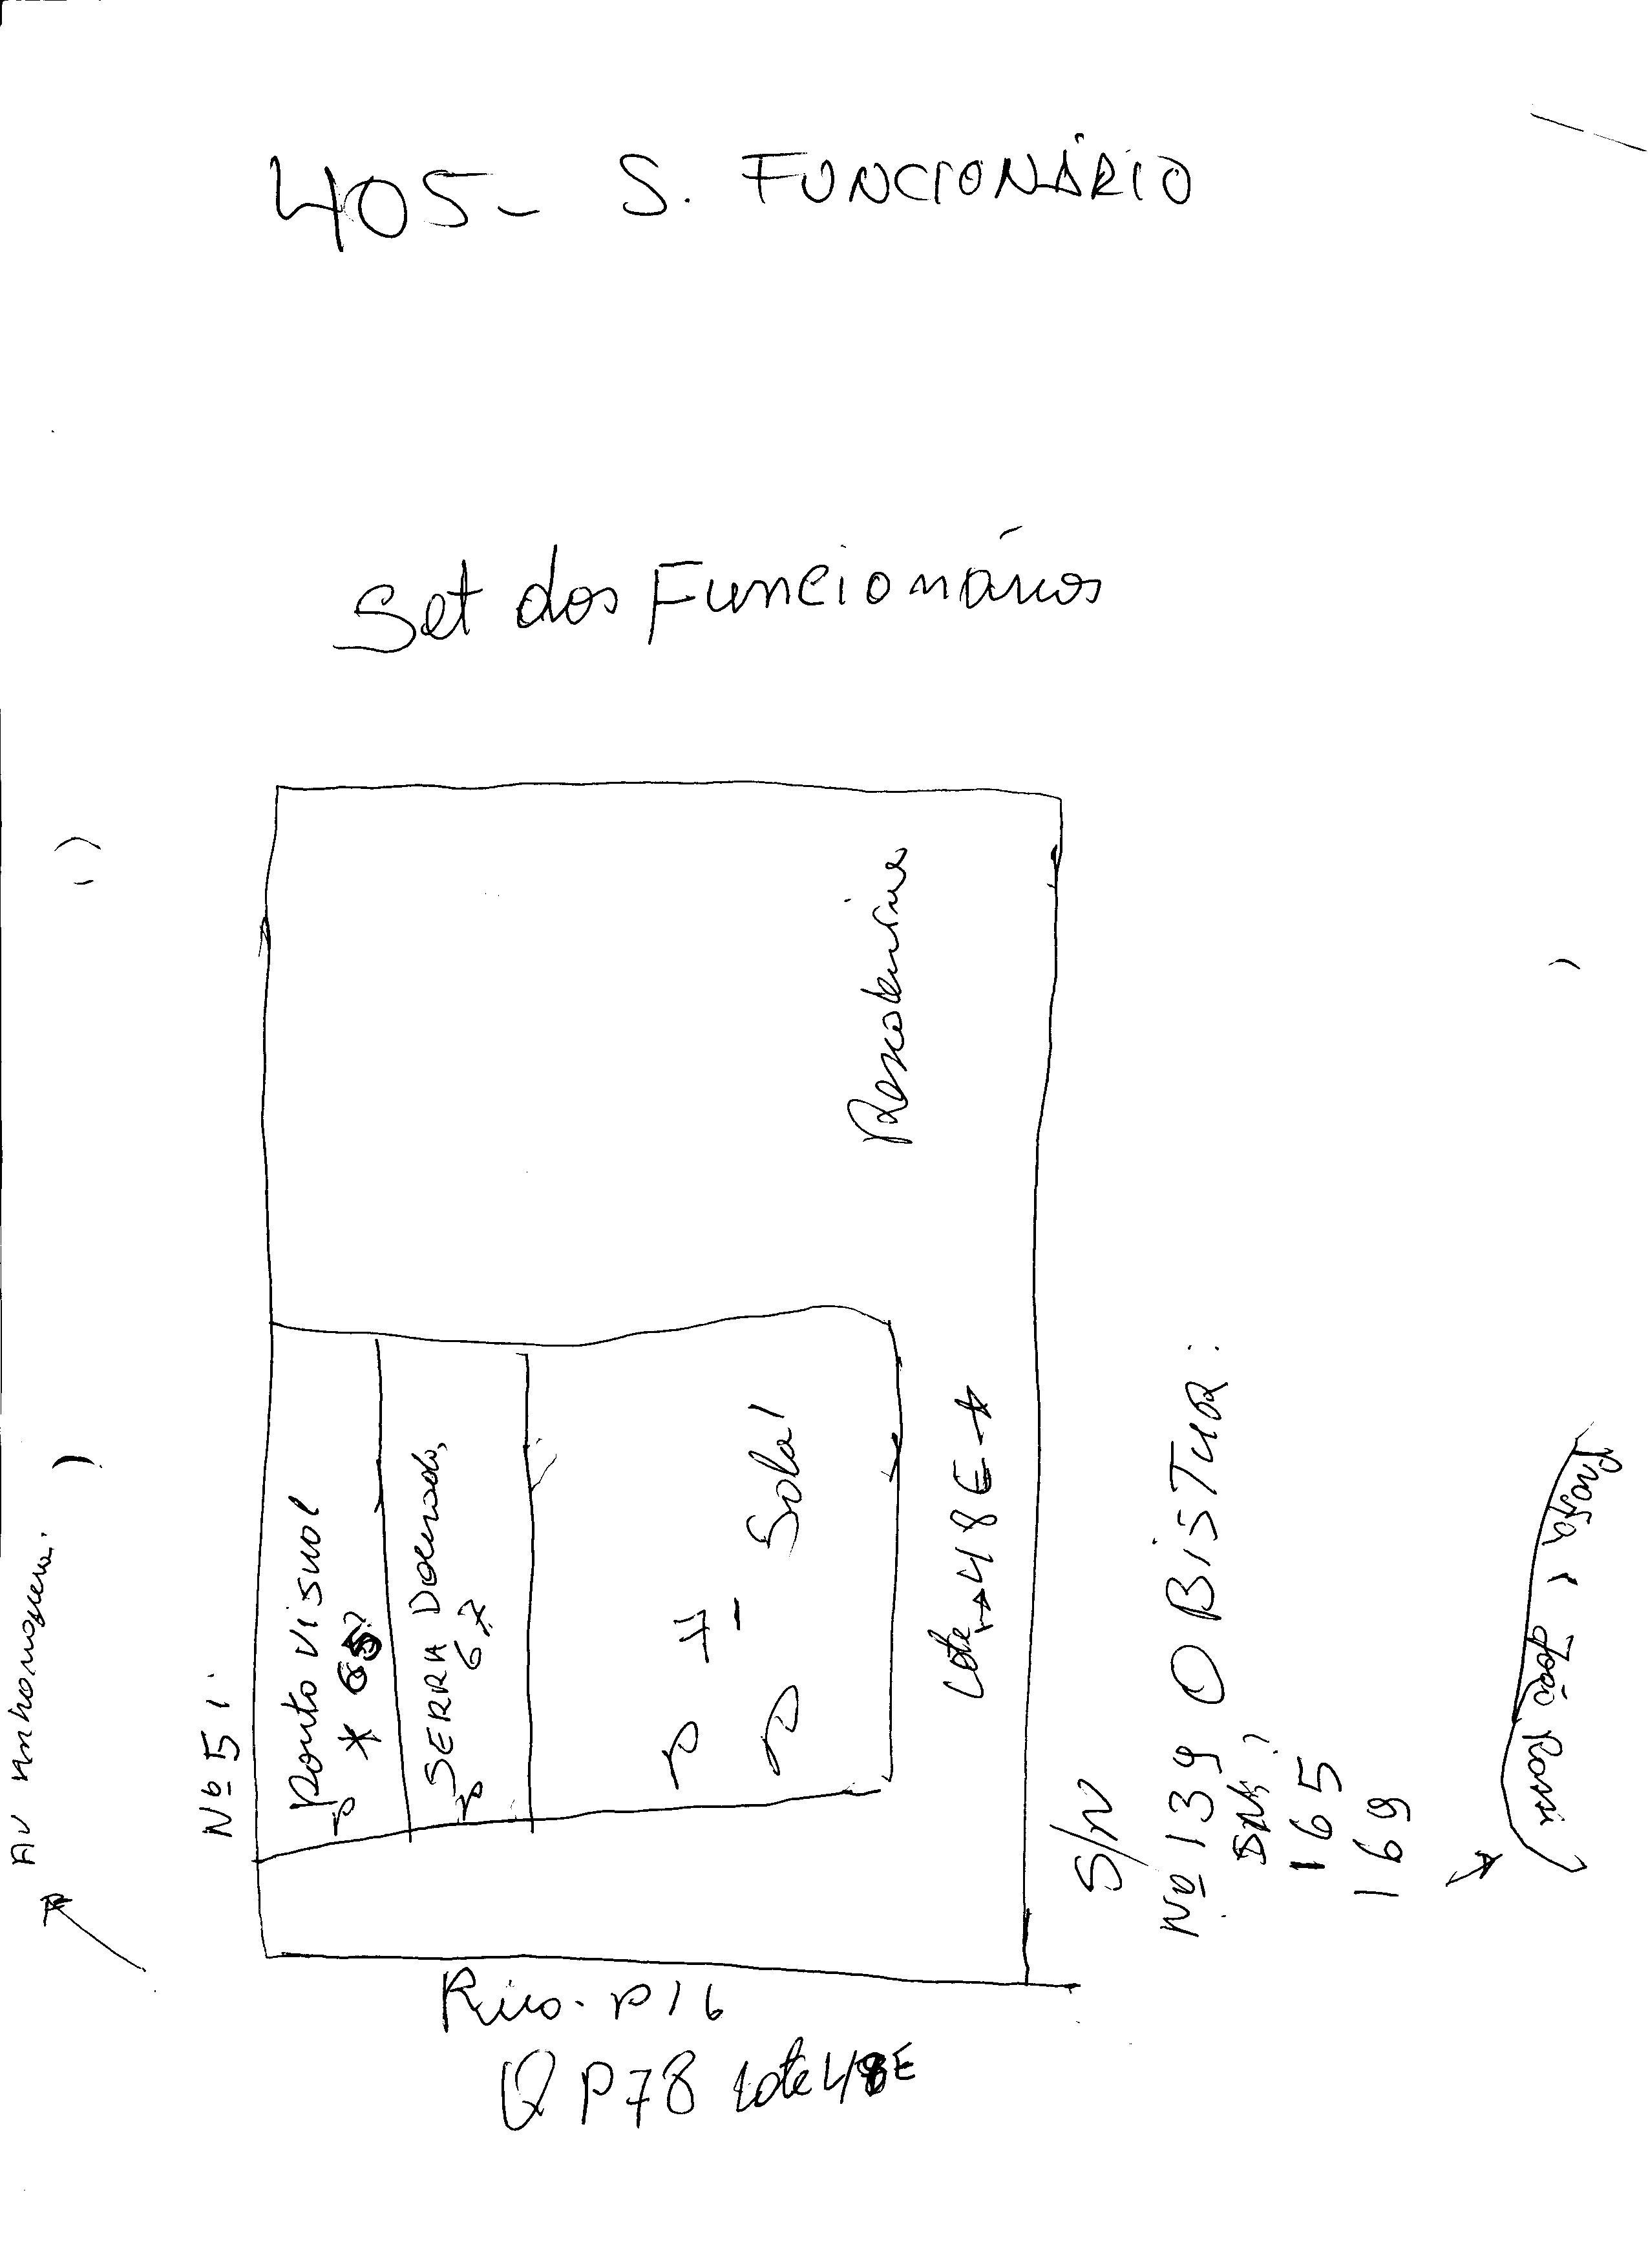 405- S. FUNCIONÁRIO
Set dos Funcionários
AV Anhanguera.
Nº 51
Ponto Visual
* 65?
SERRA Dourada,
67
Sala 1
Residencial
Lote → 48 E
S/N
Nº 139 O BISTURI
165
169
João Rossi
Rua. P16
Q P78 Lote 48E